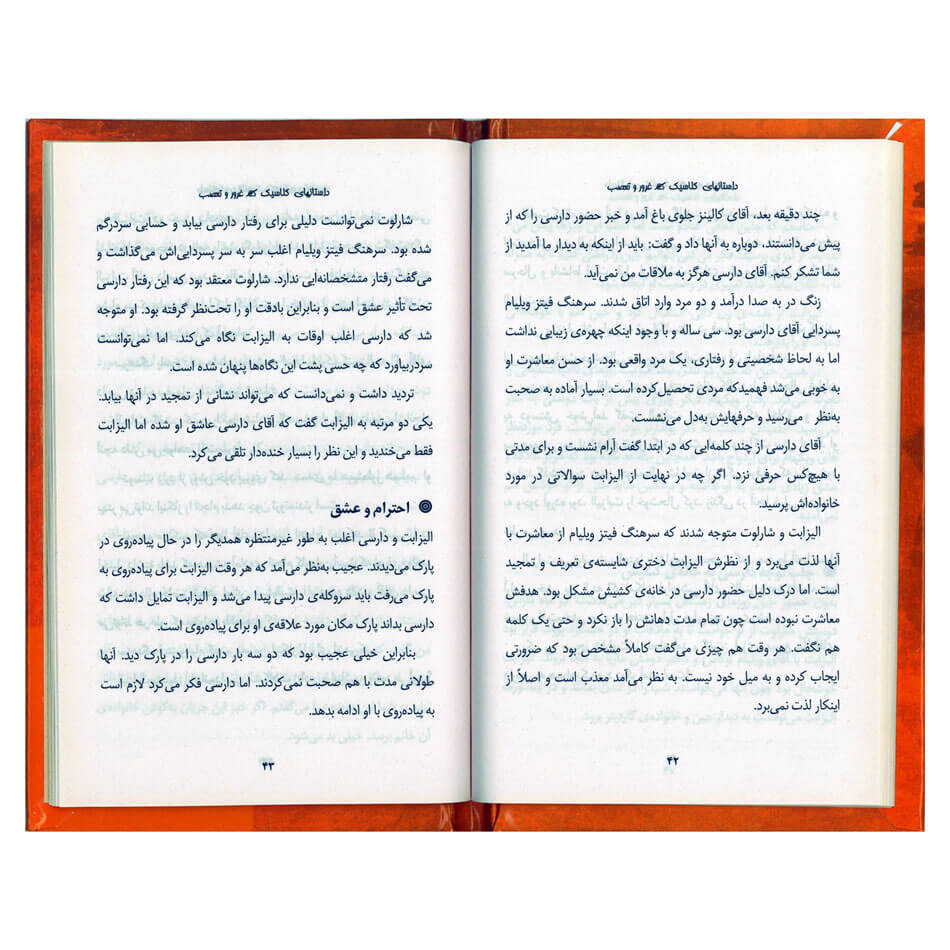 داستانهای کلاسیک که غرور و تعصب
چند دقیقه بعد، آقای کالینز جلوی باغ آمد و خبر حضور دارسی را که از
پیش می‌دانستند، دوباره به آنها داد و گفت: باید از اینکه به دیدار ما آمدید از
شما تشکر کنم. آقای دارسی هرگز به ملاقات من نمی‌آید.
زنگ در به صدا درآمد و دو مرد وارد اتاق شدند. سرهنگ فیتز ویلیام
پسردایی آقای دارسی بود. سی ساله و با وجود اینکه چهره‌ی زیبایی نداشت
اما به لحاظ شخصیتی و رفتاری، یک مرد واقعی بود. از حسن معاشرت او
به خوبی می‌شد فهمیدکه مردی تحصیل‌کرده است. بسیار آماده به صحبت
به‌نظر می‌رسید و حرفهایش به‌دل می‌نشست.
آقای دارسی از چند کلمه‌ایی که در ابتدا گفت آرام نشست و برای مدتی
با هیچ‌کس حرفی نزد. اگر چه در نهایت از الیزابت سوالاتی در مورد
خانواده‌اش پرسید.
الیزابت و شارلوت متوجه شدند که سرهنگ فیتز ویلیام از معاشرت با
آنها لذت می‌برد و از نظرش الیزابت دختری شایسته‌ی تعریف و تمجید
است. اما درک دلیل حضور دارسی در خانه‌ی کشیش مشکل بود. هدفش
معاشرت نبوده است چون تمام مدت دهانش را باز نکرد و حتی یک کلمه
هم نگفت. هر وقت هم چیزی می‌گفت کاملاً مشخص بود که ضرورتی
ایجاب کرده و به میل خود نیست. به نظر می‌آمد معذب است و اصلاً از
اینکار لذت نمی‌برد.
۴۲
داستانهای کلاسیک که غرور و تعصب
شارلوت نمی‌توانست دلیلی برای رفتار دارسی بیابد و حسابی سردرگم
شده بود. سرهنگ فیتز ویلیام اغلب سر به سر پسردایی‌اش می‌گذاشت و
می‌گفت رفتار متشخصانه‌ایی ندارد. شارلوت معتقد بود که این رفتار دارسی
تحت تأثیر عشق است و بنابراین بادقت او را تحت‌نظر گرفته بود. او متوجه
شد که دارسی اغلب اوقات به الیزابت نگاه می‌کند. اما نمی‌توانست
سردربیاورد که چه حسی پشت این نگاه‌ها پنهان شده است.
تردید داشت و نمی‌دانست که می‌تواند نشانی از تمجید در آنها بیابد.
یکی دو مرتبه به الیزابت گفت که آقای دارسی عاشق او شده اما الیزابت
فقط می‌خندید و این نظر را بسیار خنده‌دار تلقی می‌کرد.
احترام و عشق
الیزابت و دارسی اغلب به طور غیرمنتظره همدیگر را در حال پیاده‌روی در
پارک می‌دیدند. عجیب به‌نظر می‌آمد که هر وقت الیزابت برای پیاده‌روی به
پارک می‌رفت باید سروکله‌ی دارسی پیدا می‌شد و الیزابت تمایل داشت که
دارسی بداند پارک مکان مورد علاقه‌ی او برای پیاده‌روی است.
بنابراین خیلی عجیب بود که دو سه بار دارسی را در پارک دید. آنها
طولانی مدت با هم صحبت نمی‌کردند. اما دارسی فکر می‌کرد لازم است
به پیاده‌روی با او ادامه بدهد.
۴۳